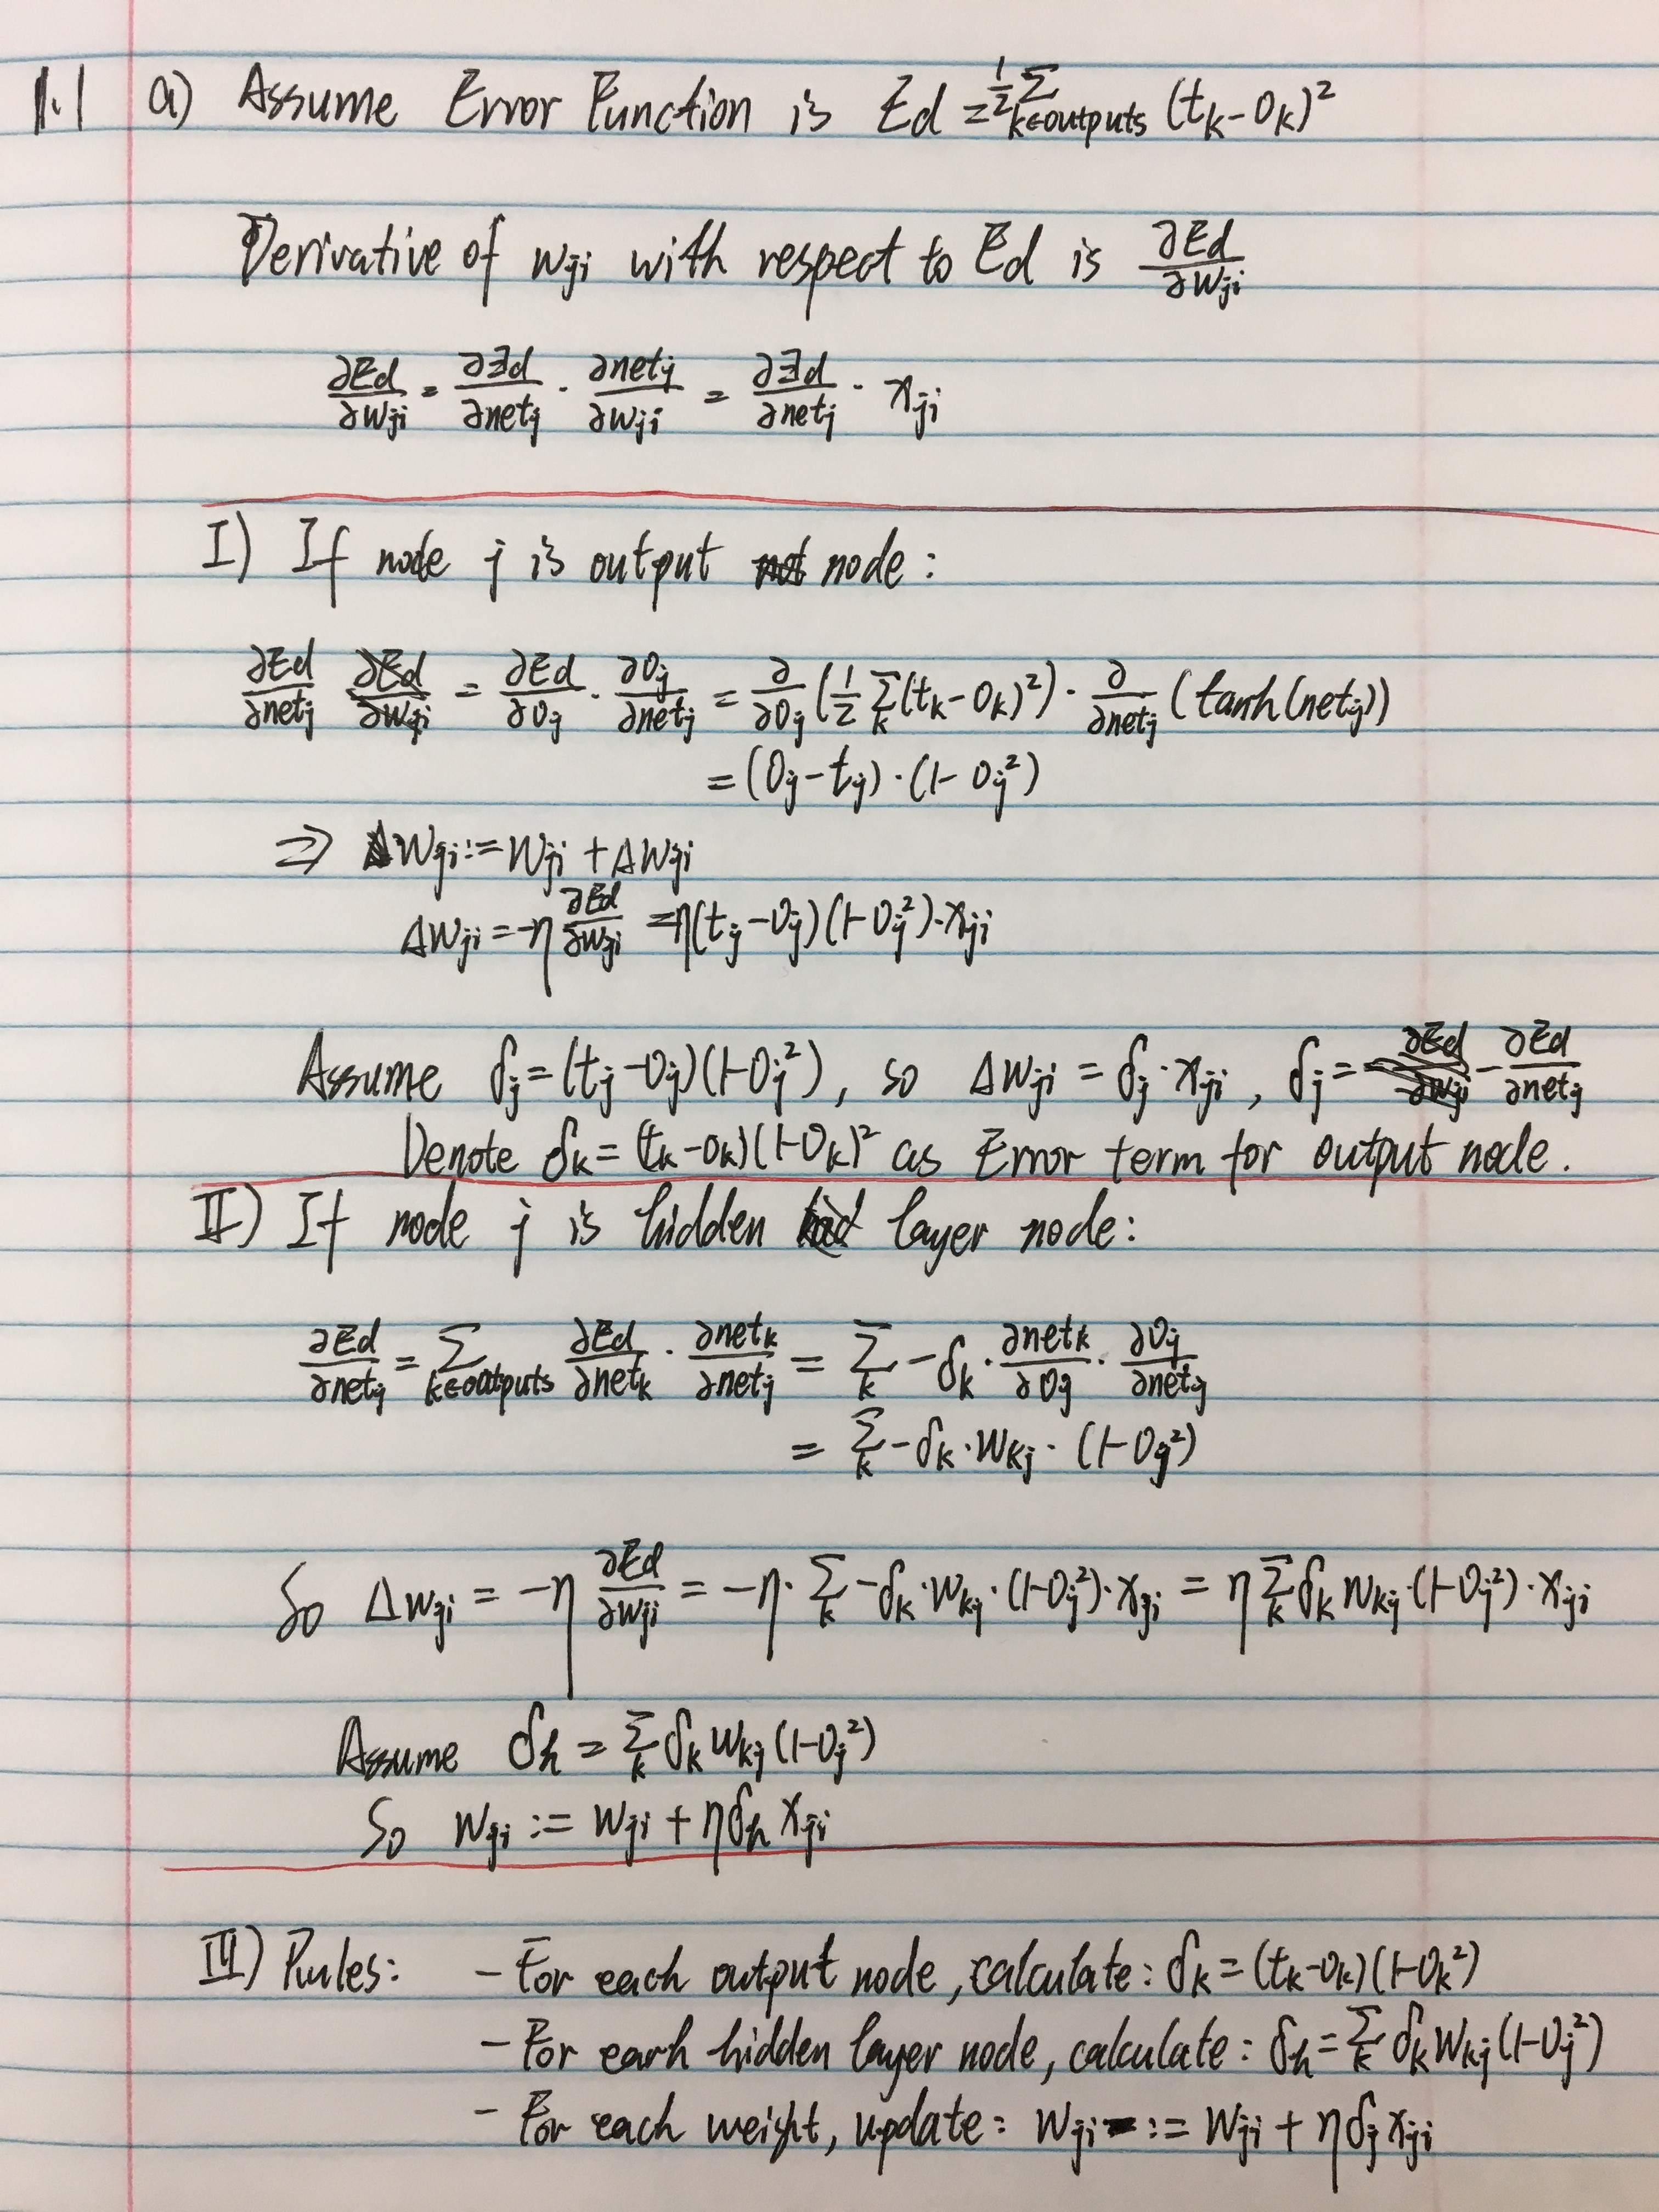 1.1 a) Assume Error Function is Ed = ½ Σ_{k∈outputs} (t_k - O_k)²
Derivative of w_ji with respect to Ed is ∂Ed/∂w_ji
∂Ed/∂w_ji = ∂Ed/∂net_j · ∂net_j/∂w_ji = ∂Ed/∂net_j · x_ji
I) If node j is output node:
∂Ed/∂net_j = ∂Ed/∂O_j · ∂O_j/∂net_j = ∂/∂O_j (½ Σ_k (t_k - O_k)²) · ∂/∂net_j (tanh(net_j))
= (O_j - t_j) · (1 - O_j²)
⇒ w_ji := w_ji + Δw_ji
Δw_ji = -η ∂Ed/∂w_ji = η(t_j - O_j)(1 - O_j²) · x_ji
Assume δ_j = (t_j - O_j)(1 - O_j²), so Δw_ji = δ_j · x_ji, δ_j = - ∂Ed/∂net_j
Denote δ_k = (t_k - O_k)(1 - O_k)² as Error term for output node.
II) If node j is hidden layer node:
∂Ed/∂net_j = Σ_{k∈outputs} ∂Ed/∂net_k · ∂net_k/∂net_j = Σ_k -δ_k · ∂net_k/∂O_j · ∂O_j/∂net_j
= Σ_k -δ_k · w_kj · (1 - O_j²)
So Δw_ji = -η ∂Ed/∂w_ji = -η · Σ_k -δ_k · w_kj · (1 - O_j²) · x_ji = η Σ_k δ_k w_kj · (1 - O_j²) · x_ji
Assume δ_h = Σ_k δ_k w_kj (1 - O_j²)
So w_ji := w_ji + η δ_h x_ji
III) Rules: - For each output node, calculate: δ_k = (t_k - O_k)(1 - O_k²)
- For each hidden layer node, calculate: δ_h = Σ_k δ_k w_kj (1 - O_j²)
- For each weight, update: w_ji := w_ji + η δ_j x_ji